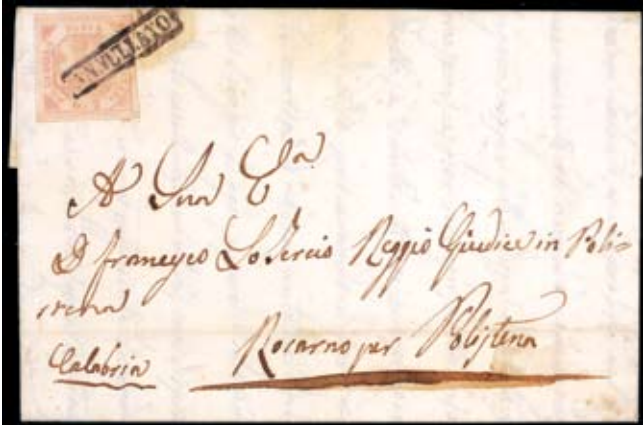 ANNULLATO
A Sua E.za
D. Francesco Lo Sercio Reggio Giudice in Poli-
stena
Calabria
Rosarno per Polistena